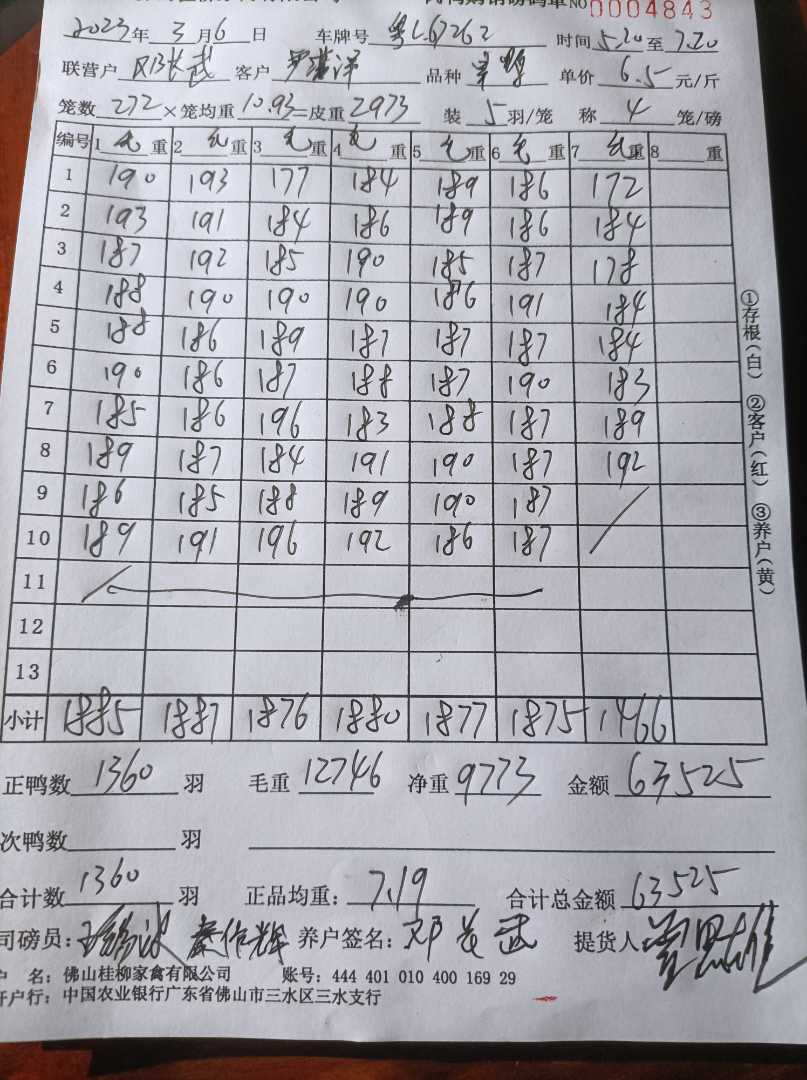 NO 0004843
2023年 3月6日 车牌号 粤L67262 时间5.20至7.20
联营户 邓长武 客户 罗洪洋 品种 单价 6.5 元/斤
笼数 272 ×笼均重 10.93 =皮重 2973 装 5 羽/笼 称 4 笼/磅
编号 1 毛 重 2 毛 重 3 毛 重 4 毛 重 5 毛 重 6 毛 重 7 毛 重 8 重
1 190 193 177 184 189 186 172
2 193 191 184 186 189 186 184
3 187 192 185 190 185 187 178
4 188 190 190 190 186 191 184
5 188 186 189 187 187 187 184
6 190 186 187 188 187 190 183
7 185 186 196 183 188 187 189
8 189 187 184 191 190 187 192
9 186 185 188 189 190 187
10 189 191 196 192 186 187
11
12
13
小计 1885 1887 1876 1880 1877 1875 1466
①存根(白) ②客户(红) ③养户(黄)
正鸭数 1360 羽 毛重 12746 净重 9773 金额 63525
次鸭数 羽
合计数 1360 羽 正品均重: 7.19 合计总金额 63525
司磅员: 养户签名: 邓长武 提货人:
户 名: 佛山桂柳家禽有限公司 账号: 444 401 010 400 169 29
开户行: 中国农业银行广东省佛山市三水区三水支行